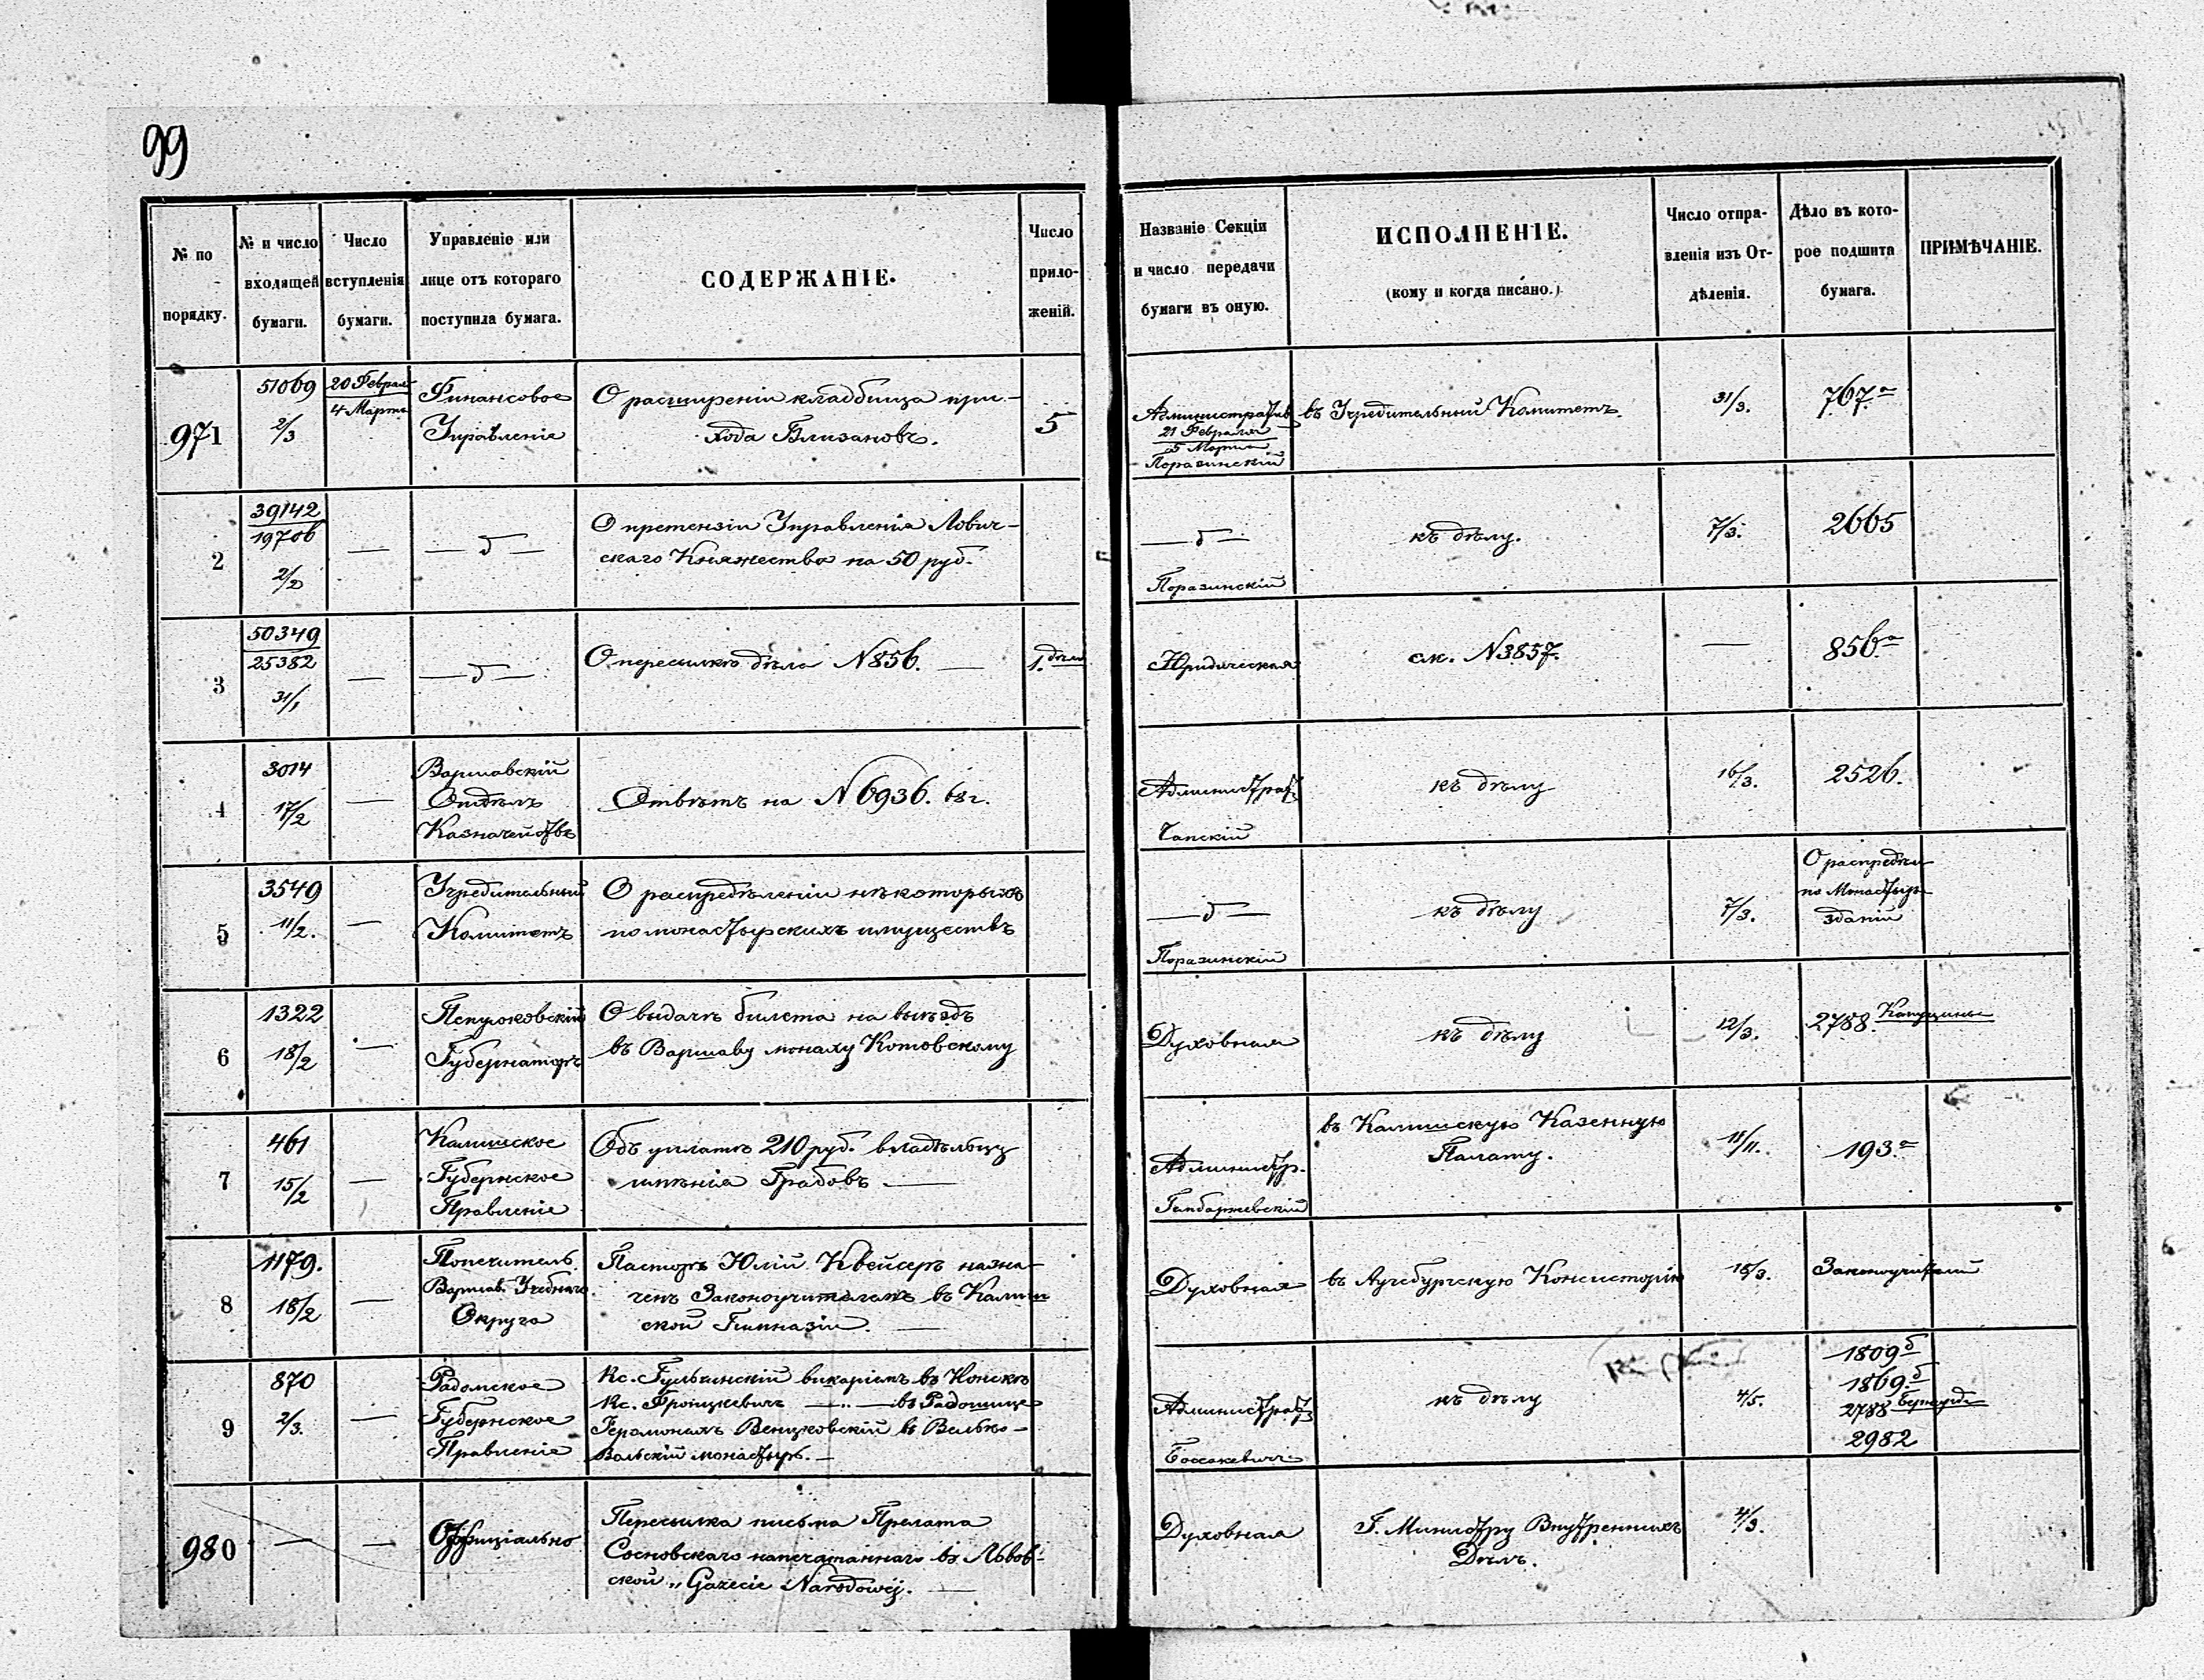 99
№ по порядку.
№ и число входящей бумаги.
Число вступленія бумаги.
Управленіе или лице отъ котораго поступила бумага.
СОДЕРЖАНІЕ.
Число приложеній.
Названіе Секціи и число передачи бумаги въ оную.
ИСПОЛНЕНІЕ.
(кому и когда писано.)
Число отправленія изъ Отдѣленія.
Дѣло въ которое подшита бумага.
ПРИМѢЧАНІЕ.
971
51069
2/3
20 Феврал
4 Марта
Финансовое
Управленіе
О расширеніи кладбища при-
хода Близановъ.
5
Административ
21 Февраля
5 Марта
Поразинскій
въ Учредительный Комитетъ
31/3.
767 а
2
39142
19706
2/2
—
— " —
О претензіи Управленія Лович-
скаго Княжества на 50 руб.
— " —
Поразинскій
къ дѣлу.
7/3.
2665
3
50349
25382
31/1
—
— " —
О пересылкѣ дѣла № 856. —
1. дѣло
Юридическая
см. № 3857.
—
856 а
4
3014
17/2
—
Варшавскій
Отдѣлъ
Казначейства
Отвѣтъ на № 6936. 68 г.
Администрат
Чапскій
къ дѣлу
16/3.
2526.
5
3549
11/2.
—
Учредительный
Комитетъ
О распредѣленіи нѣкоторыхъ
помонастырскихъ имуществъ
— " —
Поразинскій
къ дѣлу
7/3.
О распредѣл
по Монастыр
зданій
6
1322
18/2
—
Губернаторъ
О выдачѣ билета на выѣздъ
въ Варшаву монаху Котовскому
Духовная
къ дѣлу
12/3.
2788. Капуцины
7
461
15/2
—
Калишское
Губернское
Правленіе
Объ уплатѣ 210 руб. владѣльцу
имѣнія Грабовъ —
Администр.
въ Калишскую Казенную
Палату.
11/11.
193 а
8
1179.
18/2
—
Попечитель
Варшав. Учебнаго
Округа
Пасторъ Юлій Квейсеръ назна-
ченъ Законоучителемъ въ Калиш
ской Гимназіи. —
Духовная
въ Аугсбургскую Консисторію
18/3.
Законоучителей
9
870
2/3.
—
Радомское
Губернское
Правленіе
Кс. Гульчинскій викаріемъ въ Конскѣ
Кс. Фронцкевичъ — " — въ Радошице
Іеромонахъ Венцковскій въ Велько-
Вольскій монастырь. —
Администрат
къ дѣлу
4/5.
1809 б
1869 б
2788 Бернард
2982
980
—
—
Оффиціально
Пересылка письма Прелата
Сосновскаго напечатаннаго въ Львов-
ской „Gazecie Narodowej. —
Духовная
Г. Министру Внутреннихъ
Дѣлъ.
4/3.